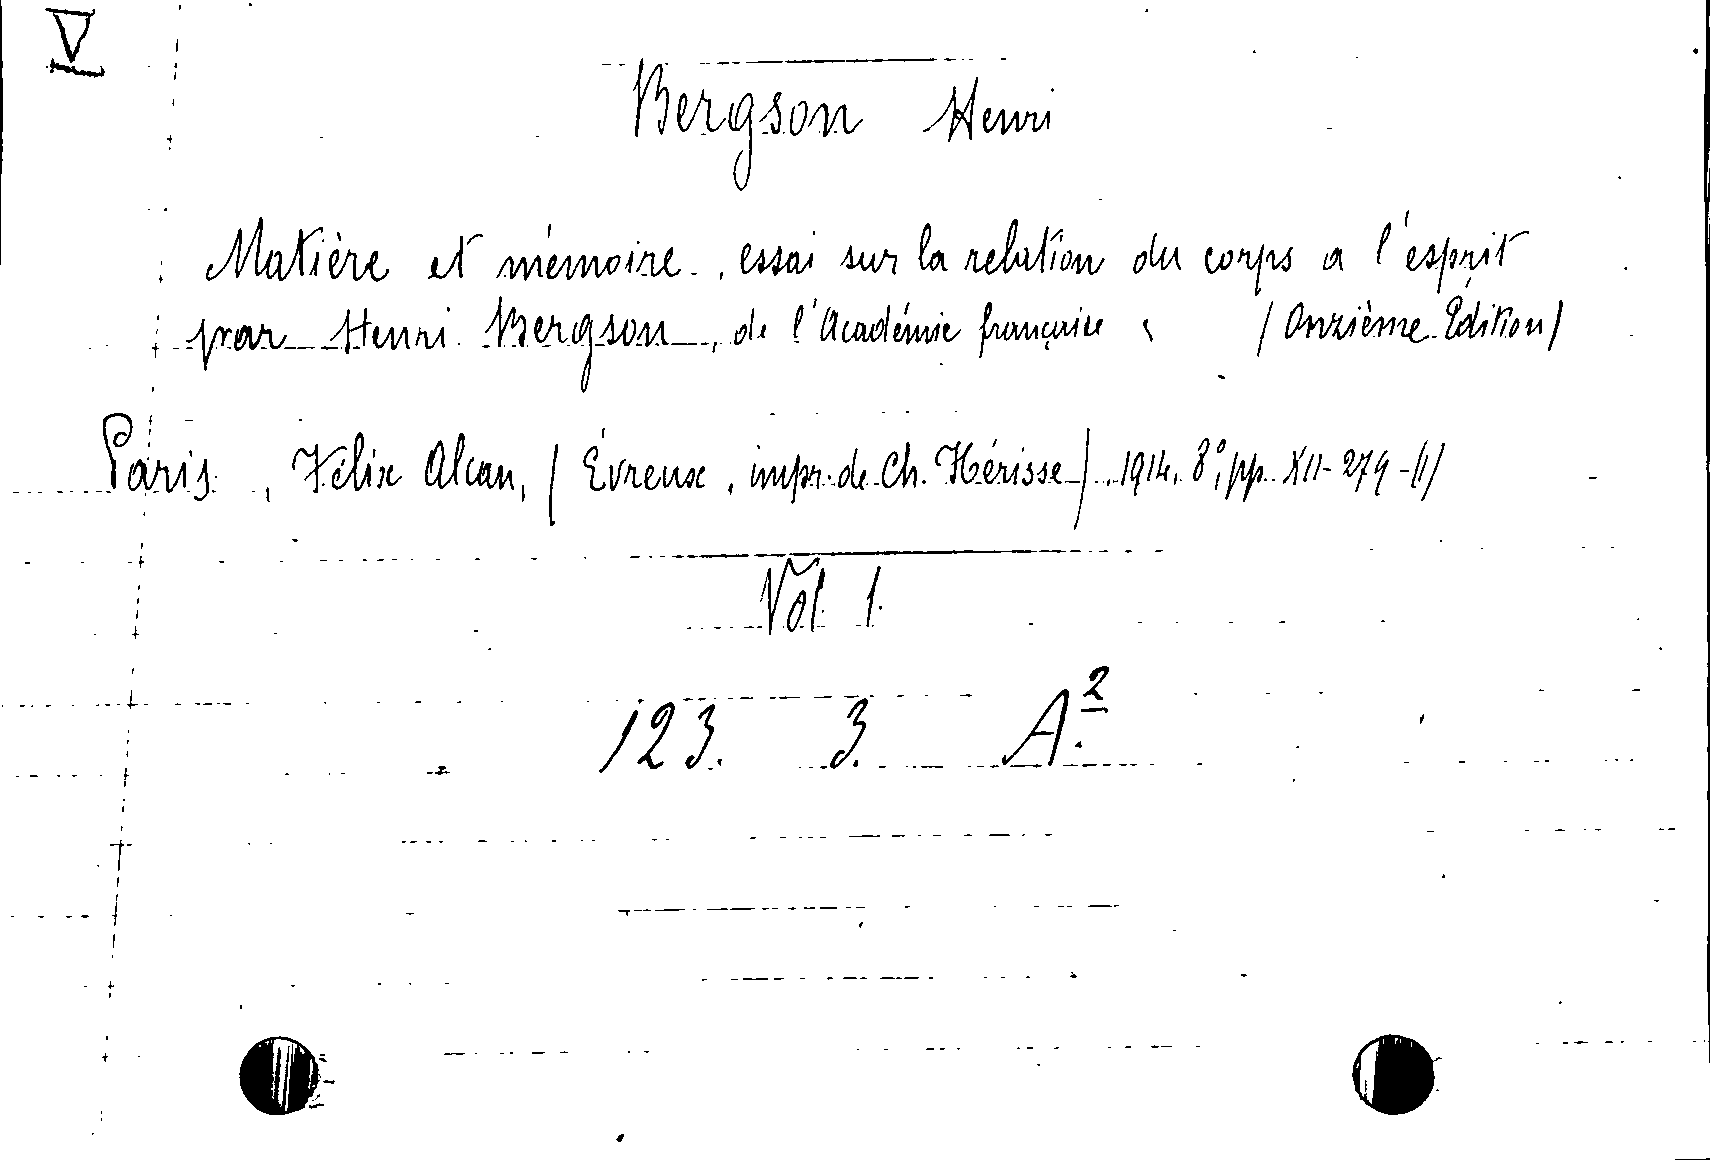 V
Bergson Henri
Matière et mémoire, essai sur la relation du corps a l'esprit
par Henri Bergson, de l'Académie française. (Onzième Édition)
Paris, Félix Alcan, (Évreux, impr. de Ch. Hérissé), 1914, 8°, pp. XII-279-(1)
Vol. 1.
123. 3. A.²